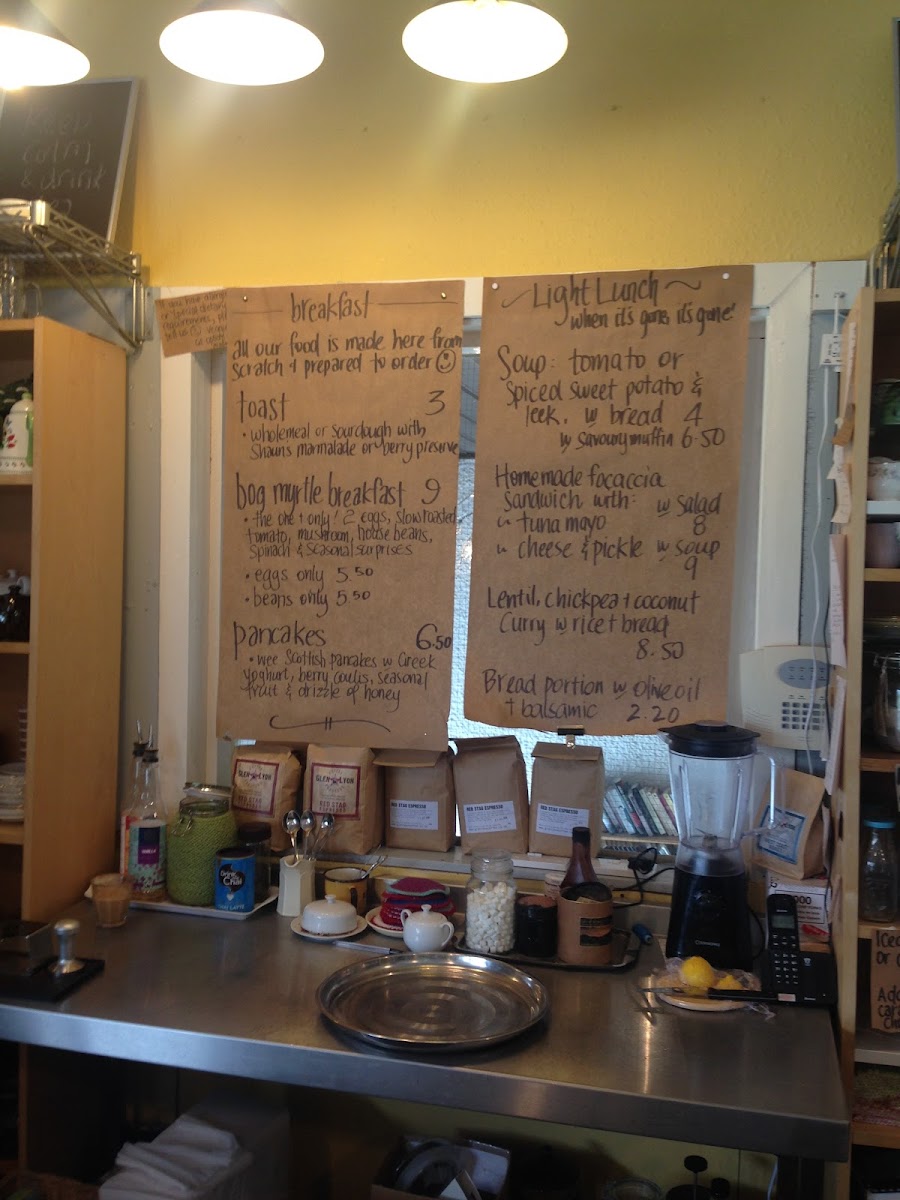 Keep
calm
& drink
tea
breakfast
all our food is made here from
scratch + prepared to order
toast 3
• wholemeal or sourdough with
Shauns marmalade or berry preserve
bog myrtle breakfast 9
• the one + only! 2 eggs, slow roasted
tomato, mushroom, house beans,
spinach & seasonal surprises
• eggs only 5.50
• beans only 5.50
pancakes 6.50
• wee Scottish pancakes w Greek
yoghurt, berry coulis, seasonal
fruit & drizzle of honey
~ Light Lunch ~
'when it's gone, it's gone'
Soup: tomato or
Spiced sweet potato &
leek. w bread 4
w savoury muffin 6.50
Homemade focaccia
sandwich with: w salad
~ tuna mayo 8
~ cheese & pickle w soup
9
Lentil, chickpea + coconut
Curry w rice + bread
8.50
Bread portion w olive oil
+ balsamic 2.20
GLEN LYON
RED STAG
GLEN LYON
RED STAG
ESPRESSO
RED STAG ESPRESSO
RED STAG ESPRESSO
RED STAG ESPRESSO
Drink
me
Chai
Iced
or
Add